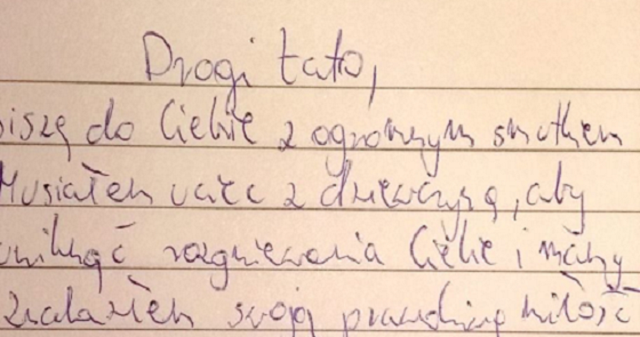 Drogi tato,
piszę do Ciebie z ogromnym smutkiem
Musiałem uciec z dziewczyną, aby
uniknąć rozgniewania Ciebie i mamy
Znalazłem swoją prawdziwą miłość